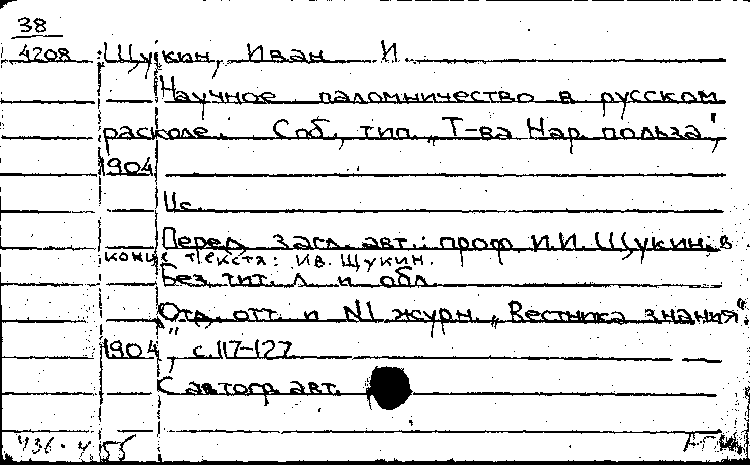 38
4208 Щукин, Иван И.
Научное паломничество в русском
расколе. Спб, тип. „Т-ва Нар. польза",
1904
11с.
Перед загл. авт.: проф. И.И. Щукин; в
конце текста: Ив. Щукин.
Без тит. л. и обл.
Отд. отт. и N1 журн. „Вестника знания".
1904, с.117-127
С автогр. авт.